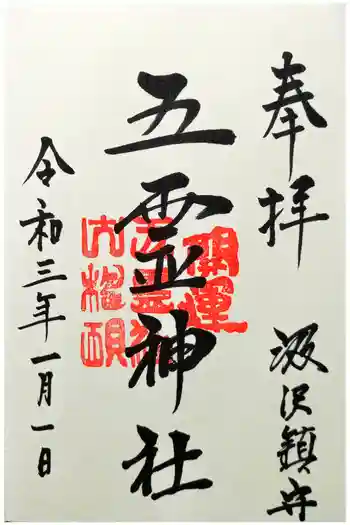 奉拝
汲沢鎮守
五霊神社
開運
令和三年一月一日